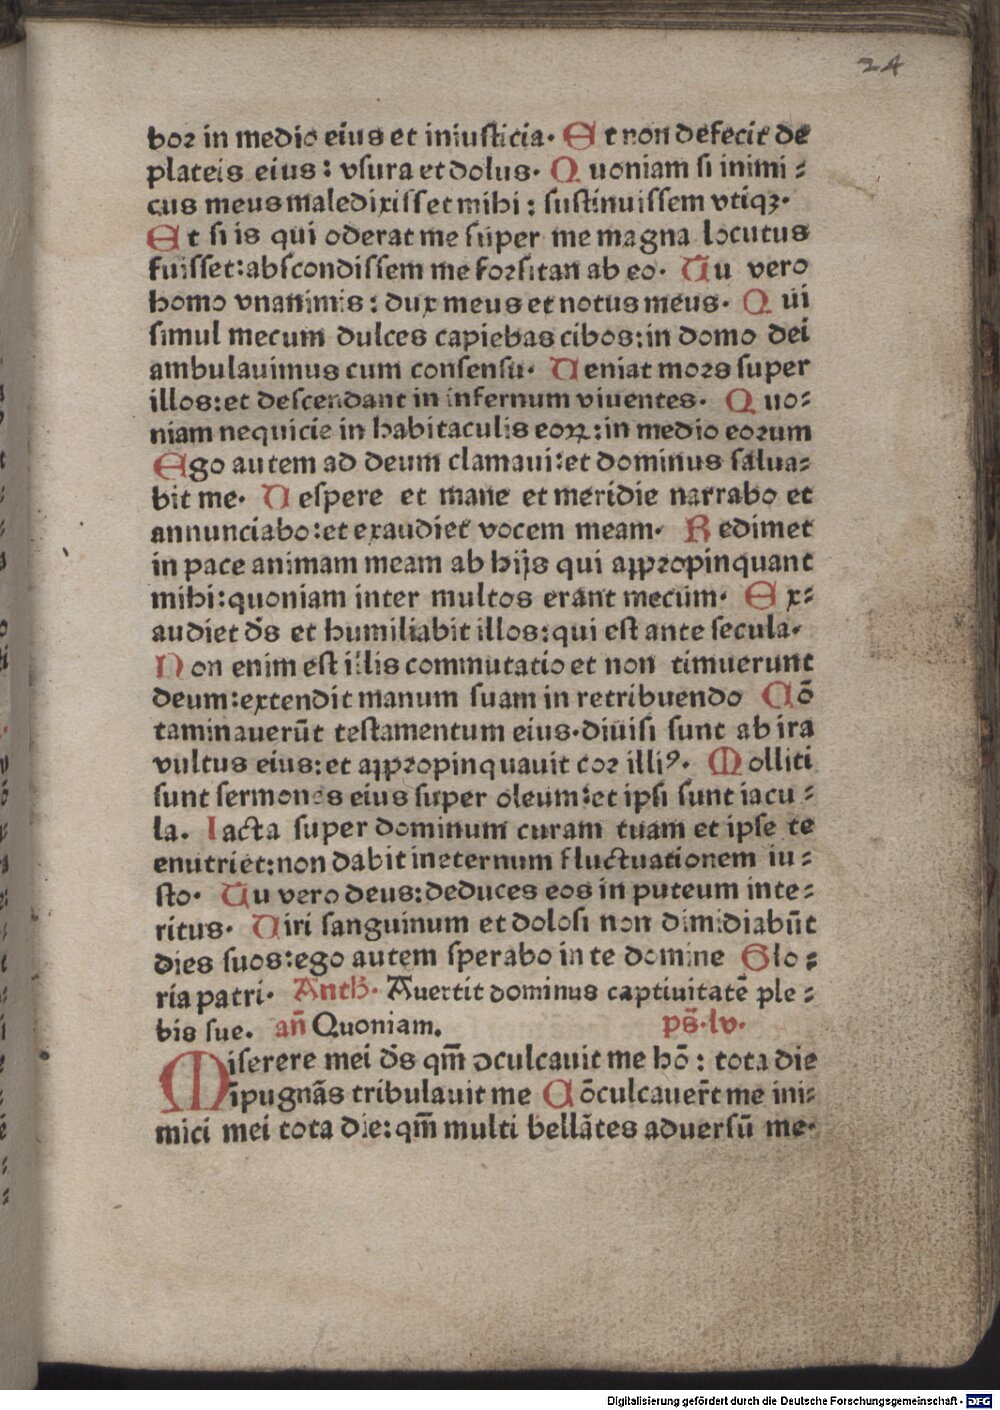 24
bor in medio eius et iniusticia. Et non defecit de
plateis eius: vsura et dolus. Quoniam si inimi-
cus meus maledixisset mihi: sustinuissem vtiqꝫ.
Et si is qui oderat me super me magna locutus
fuisset: abscondissem me forsitan ab eo. Tu vero
homo vnanimis: dux meus et notus meus. Qui
simul mecum dulces capiebas cibos: in domo dei
ambulauimus cum consensu. Veniat mors super
illos: et descendant in infernum viuentes. Quo-
niam nequicie in habitaculis eoꝝ: in medio eorum
Ego autem ad deum clamaui: et dominus salua-
bit me. Vespere et mane et meridie narrabo et
annunciabo: et exaudiet vocem meam. Redimet
in pace animam meam ab hijs qui appropinquant
mihi: quoniam inter multos erant mecum. Ex-
audiet ds̄ et humiliabit illos: qui est ante secula.
Non enim est illis commutatio et non timuerunt
deum: extendit manum suam in retribuendo Cō
taminauerūt testamentum eius. diuisi sunt ab ira
vultus eius: et appropinquauit cor illiꝰ. Molliti
sunt sermones eius super oleum: et ipsi sunt iacu-
la. Iacta super dominum curam tuam et ipse te
enutriet: non dabit in eternum fluctuationem iu-
sto. Tu vero deus: deduces eos in puteum inte-
ritus. Viri sanguinum et dolosi non dimidiabūt
dies suos: ego autem sperabo in te domine Glo-
ria patri. Anth. Auertit dominus captiuitatē ple-
bis sue. an̄ Quoniam. ps̄. lv.
Miserere mei ds̄ qm̄ ↄculcauit me hō: tota die
īpugnās tribulauit me Cōculcauer̄t me ini-
mici mei tota die: qm̄ multi bellātes aduersū me.
Digitalisierung gefördert durch die Deutsche Forschungsgemeinschaft - DFG